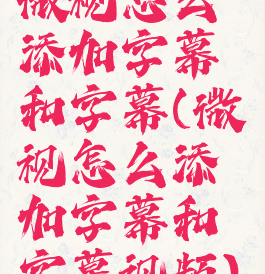 微视怎么
添加字幕
和字幕(微
视怎么添
加字幕和
字幕视频)